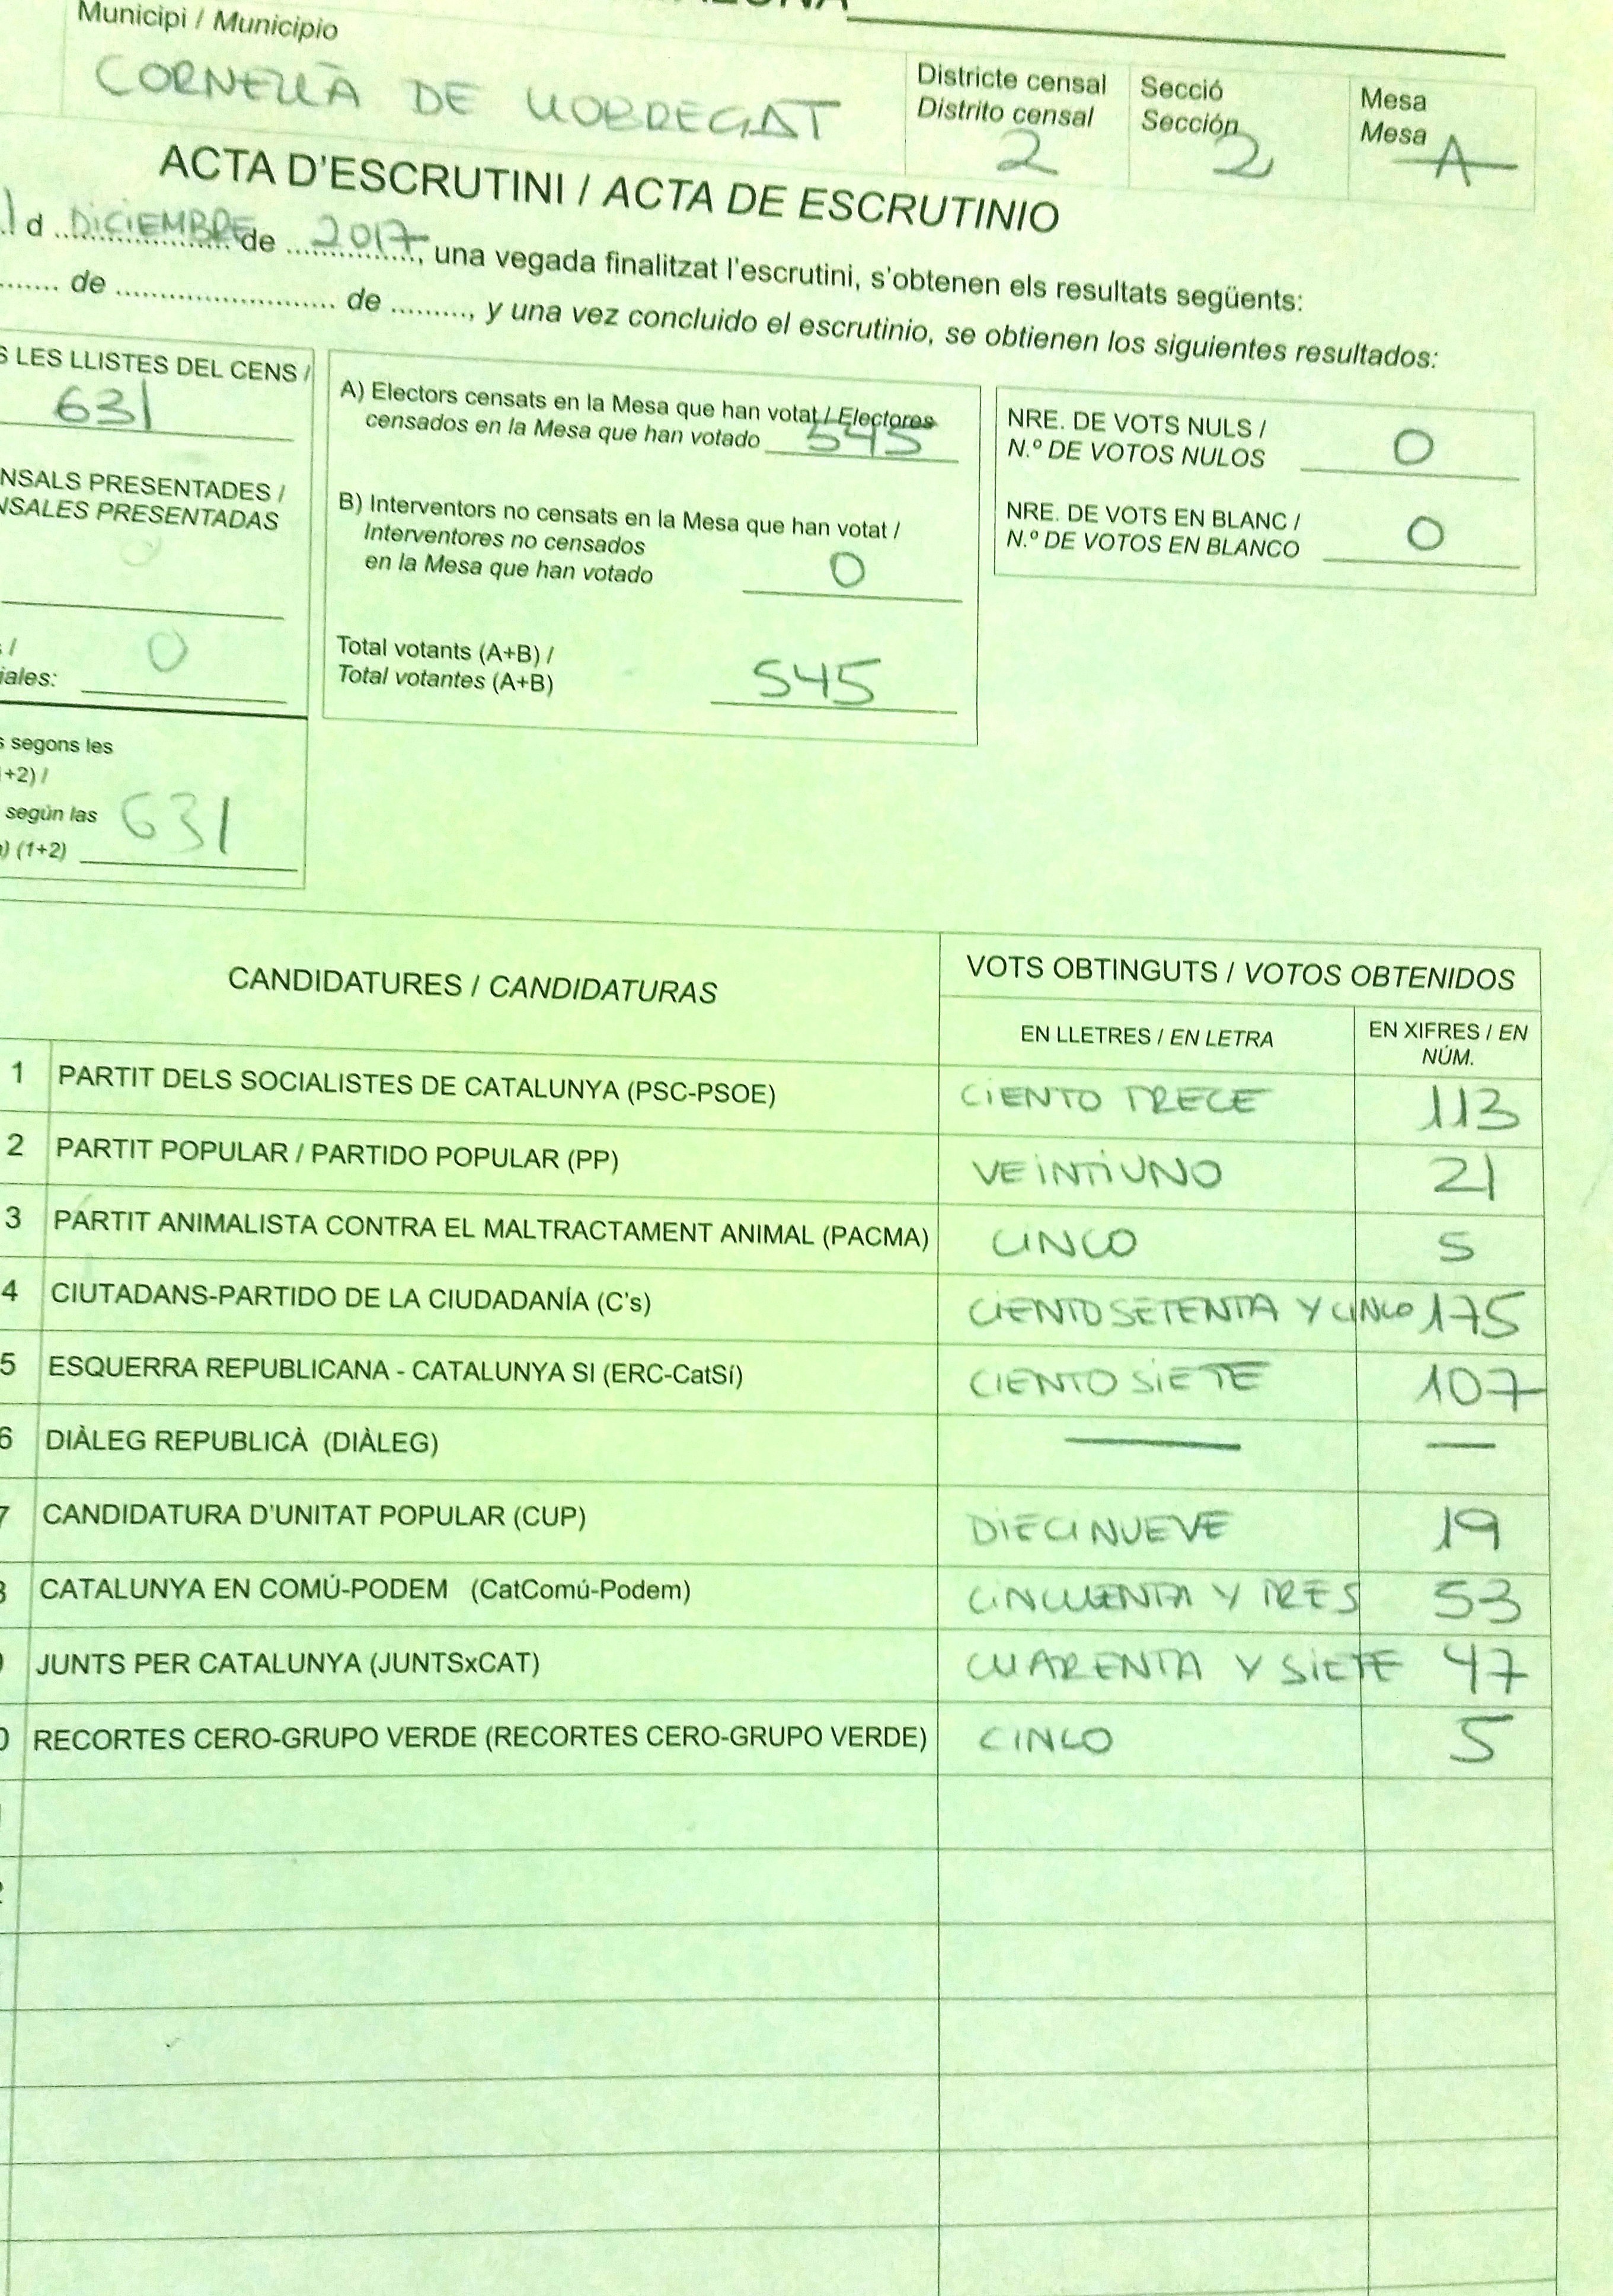 Municipi / Municipio
CORNELLÀ DE LLOBREGAT
Districte censal
Distrito censal
2
Secció
Sección
2
Mesa
Mesa
A
ACTA D'ESCRUTINI / ACTA DE ESCRUTINIO
d DICIEMBRE de 2017, una vegada finalitzat l'escrutini, s'obtenen els resultats següents:
de de, y una vez concluido el escrutinio, se obtienen los siguientes resultados:
LES LLISTES DEL CENS /
631
PRESENTADES /
PRESENTADAS
0
0
segons les
+2) /
según las
(1+2) 631
A) Electors censats en la Mesa que han votat / Electores
censados en la Mesa que han votado 545
B) Interventors no censats en la Mesa que han votat /
Interventores no censados
en la Mesa que han votado 0
Total votants (A+B) /
Total votantes (A+B) 545
NRE. DE VOTS NULS /
N.º DE VOTOS NULOS 0
NRE. DE VOTS EN BLANC /
N.º DE VOTOS EN BLANCO 0
CANDIDATURES / CANDIDATURAS
VOTS OBTINGUTS / VOTOS OBTENIDOS
EN LLETRES / EN LETRA
EN XIFRES / EN
NÚM.
1 PARTIT DELS SOCIALISTES DE CATALUNYA (PSC-PSOE) CIENTO TRECE 113
2 PARTIT POPULAR / PARTIDO POPULAR (PP) VEINTIUNO 21
3 PARTIT ANIMALISTA CONTRA EL MALTRACTAMENT ANIMAL (PACMA) CINCO 5
4 CIUTADANS-PARTIDO DE LA CIUDADANÍA (C's) CIENTO SETENTA Y CINCO 175
5 ESQUERRA REPUBLICANA - CATALUNYA SI (ERC-CatSí) CIENTO SIETE 107
6 DIÀLEG REPUBLICÀ (DIÀLEG) — —
7 CANDIDATURA D'UNITAT POPULAR (CUP) DIECINUEVE 19
CATALUNYA EN COMÚ-PODEM (CatComú-Podem) CINCUENTA Y TRES 53
JUNTS PER CATALUNYA (JUNTSxCAT) CUARENTA Y SIETE 47
0 RECORTES CERO-GRUPO VERDE (RECORTES CERO-GRUPO VERDE) CINCO 5